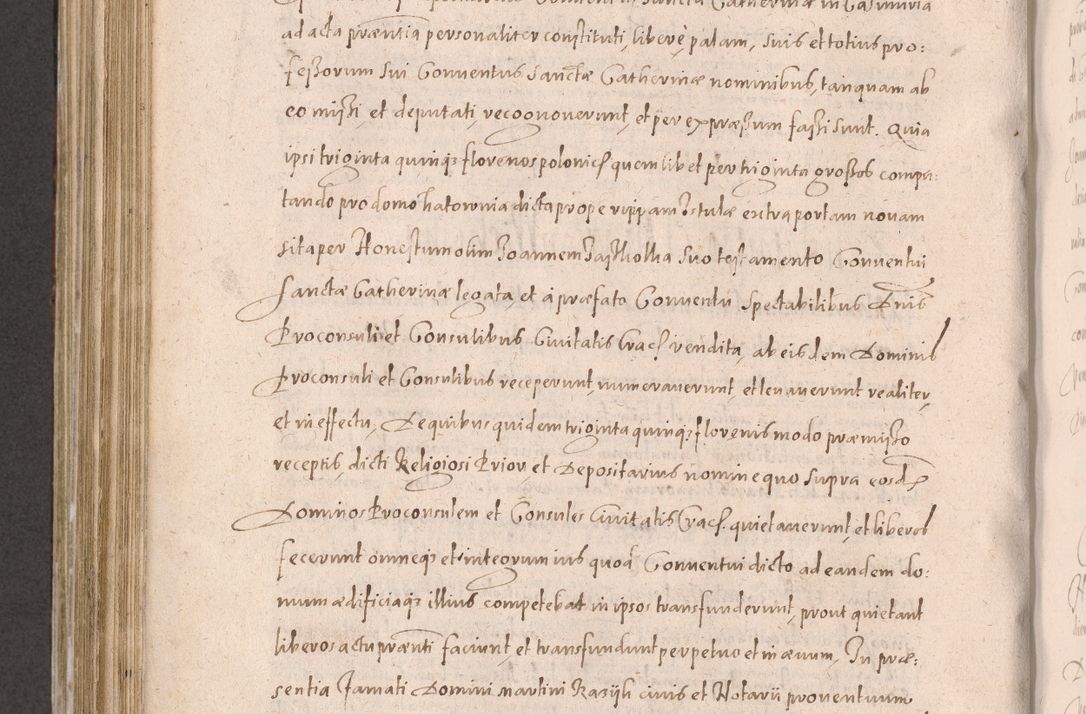 Conventus Sanctæ Catherinæ in Casimiria
ad acta præntia personaliter constituti, libere palam, suis et totius pro:
feßorum sui Conventus Sanctæ Catherinæ nominibus, tanquam ab
eo mißi, et deputati, recognoverunt, et per expræßum faßi sunt. Quia
ipsi triginta quinq3 florenos polonicꝭ quemlibet per triginta großos compu:
tando pro domo hatownia dicta prope rippam Istulæ extra portam novam
sita per Honestum olim Joannem suo testamento Conventui
Sanctæ Catherinæ legata, et á præfato Conventu Spectabilibus Dnis
Proconsuli et Consulibus Civitatis Cracꝭ vendita, ab eisdem Dominis
Proconsuli et Consulibus receperunt, numeraverunt, et levaverunt realiter,
et in effectu, De quibus quidem triginta quinq3 florenis modo præmißo
receptis dicti Religiosi Prior et Depositarius nomine quo supra eosd
Dominos Proconsulem et Consules Civitatis Cracꝭ. quietaverunt, et liberos
fecerunt omneq3 et integrum ius quod Conventui dicto ad eandem do:
mum ædificiaq3 illius competebat in ipsos transfunderunt, prout quietant
liberos actu prænti faciunt, et transfundunt perpetuo et in ævum, In præ:
sentia Famati Domini Martini civis et Notarii proventuum